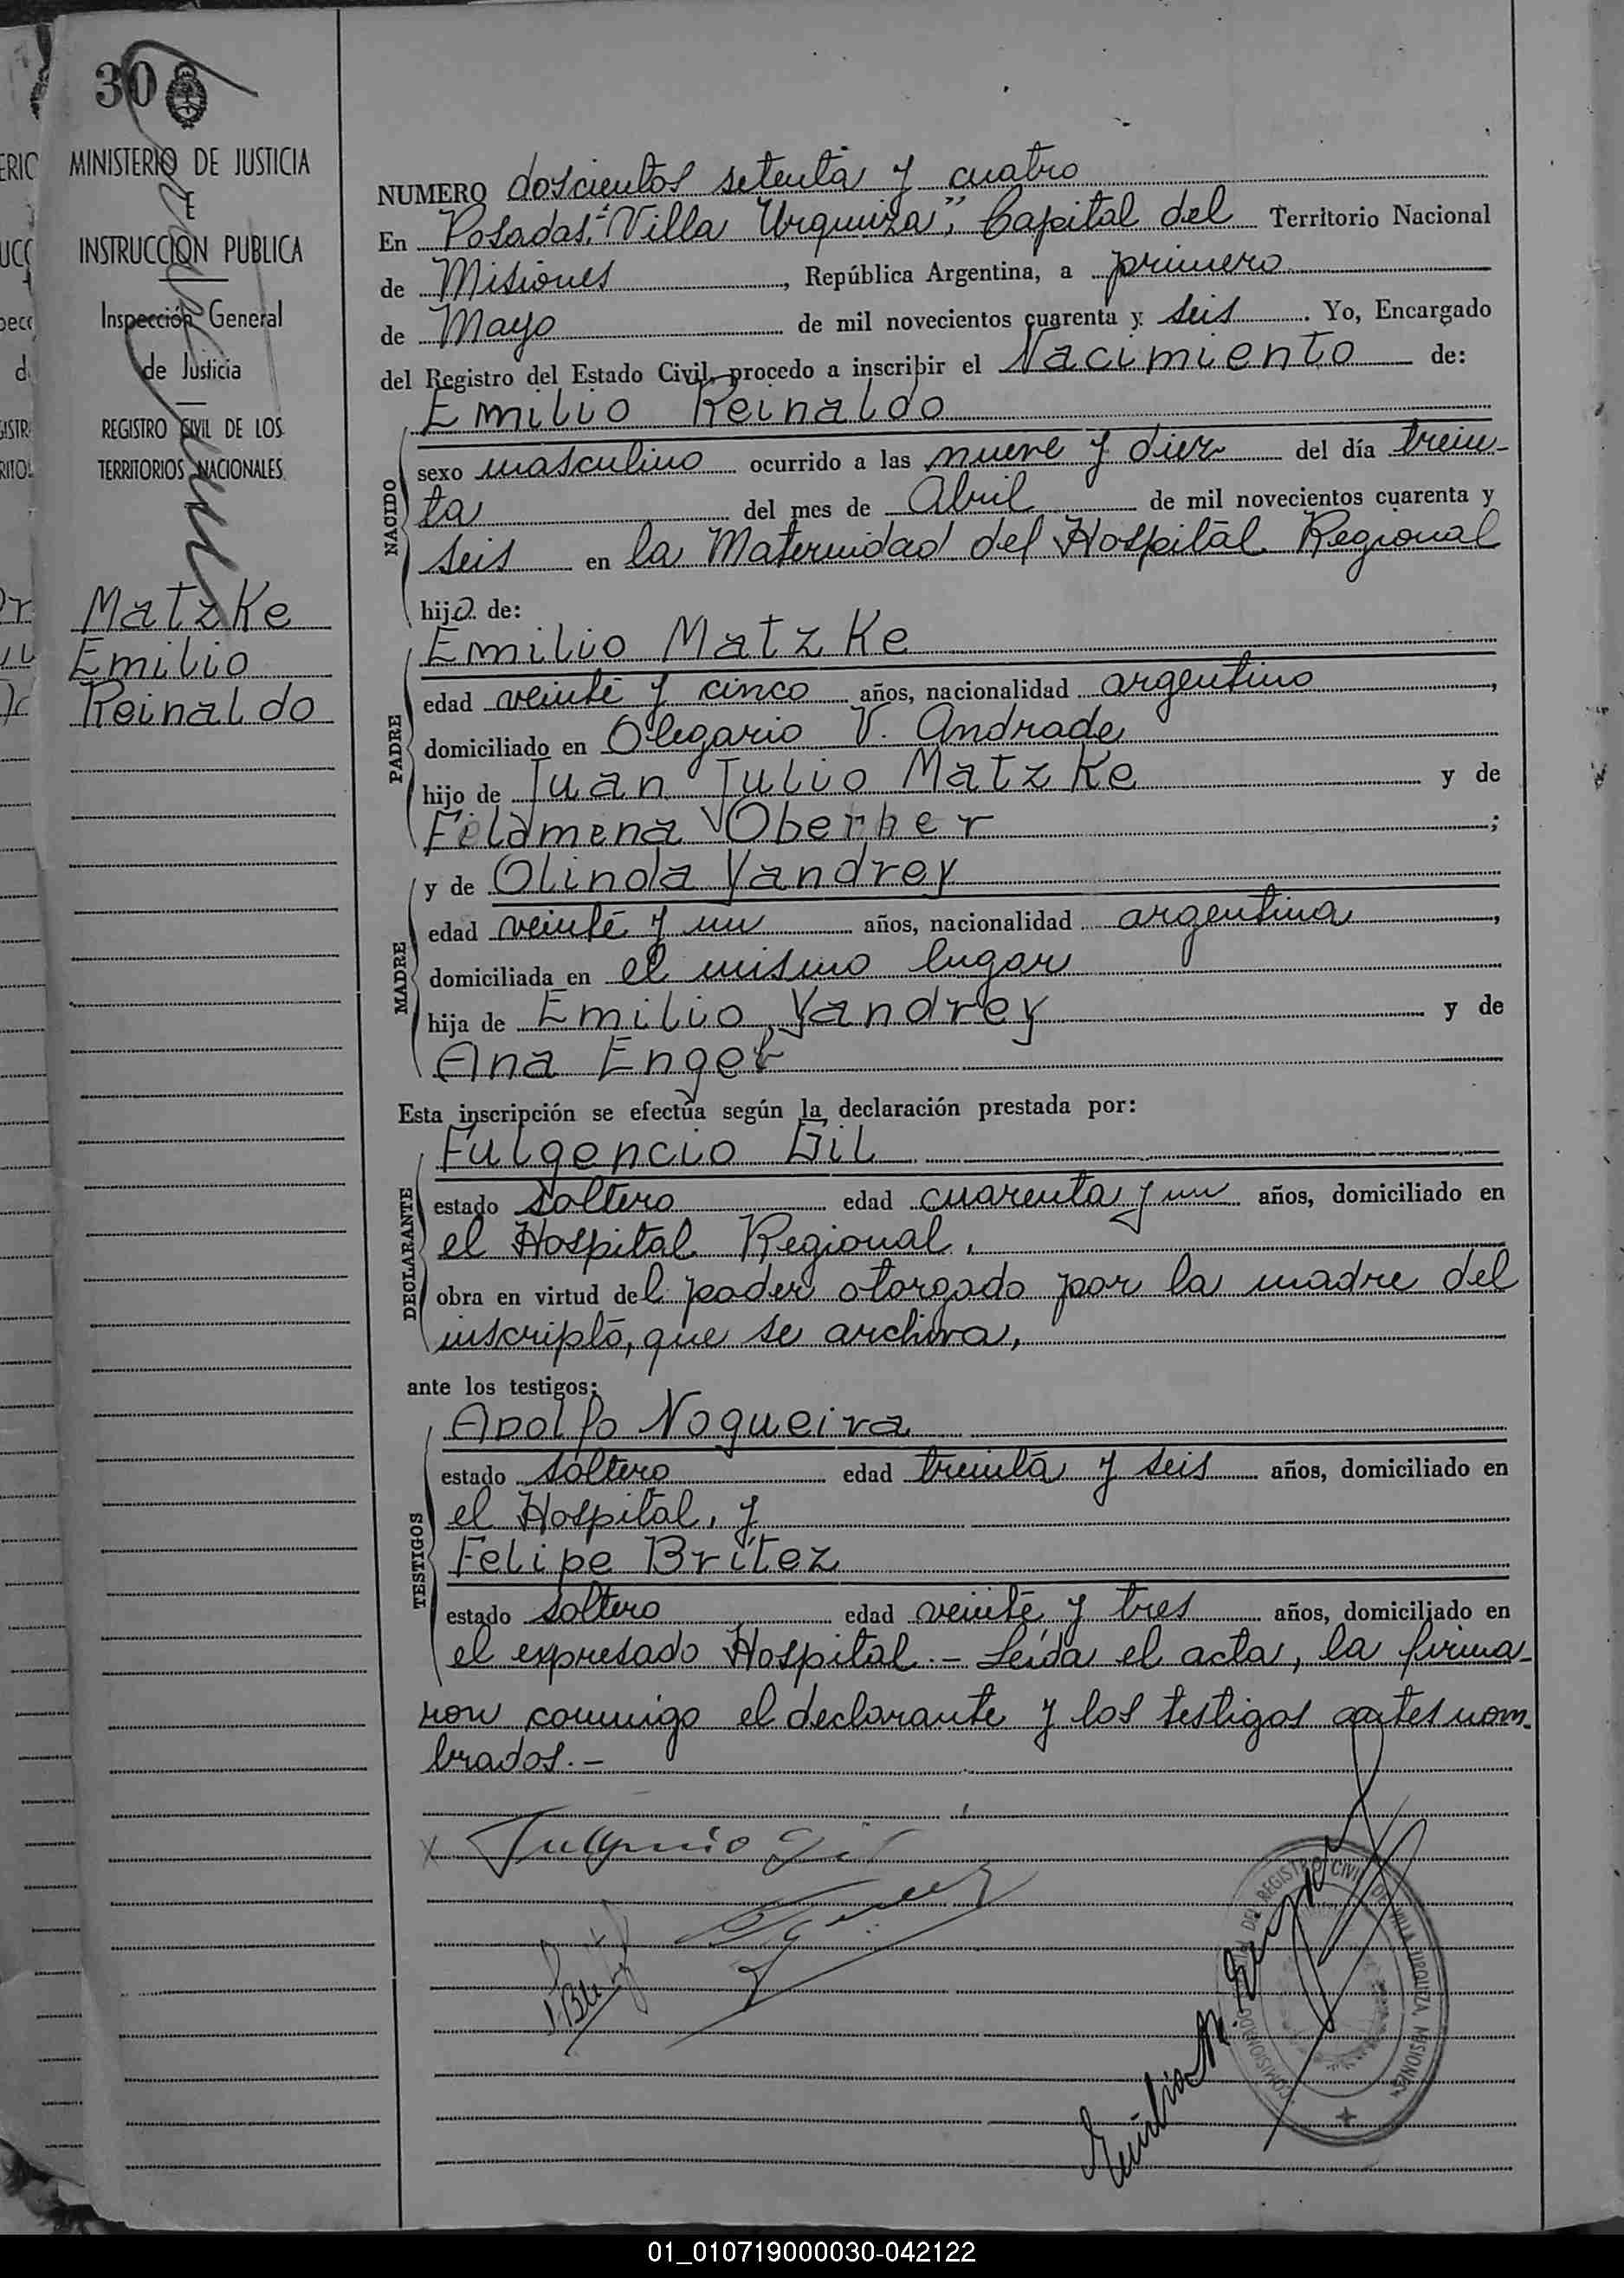 30
MINISTERIO DE JUSTICIA
E
INSTRUCCION PUBLICA
Inspección General
de Justicia
REGISTRO CIVIL DE LOS
TERRITORIOS NACIONALES
Matzke
Emilio
Reinaldo
NUMERO doscientos setenta y cuatro
En Posadas, "Villa Urquiza", Capital del Territorio Nacional
de Misiones, República Argentina, a primero
de Mayo de mil novecientos cuarenta y seis. Yo, Encargado
del Registro del Estado Civil, procedo a inscribir el Nacimiento de:
NACIDO
Emilio Reinaldo
sexo masculino ocurrido a las nueve y diez del día trein-
ta del mes de Abril de mil novecientos cuarenta y
seis en la Maternidad del Hospital Regional
hijo de:
PADRE
Emilio Matzke
edad veinte y cinco años, nacionalidad argentino,
domiciliado en Olegario V. Andrade
hijo de Juan Julio Matzke y de
Filomena Oberher;
MADRE
y de Olinda Yandrey
edad veinte y un años, nacionalidad argentina,
domiciliada en el mismo lugar
hija de Emilio Yandrey y de
Ana Engel
Esta inscripción se efectúa según la declaración prestada por:
DECLARANTE
Fulgencio Gil
estado soltero edad cuarenta y un años, domiciliado en
el Hospital Regional.
obra en virtud del poder otorgado por la madre del
inscripto, que se archiva,
ante los testigos:
TESTIGOS
Adolfo Nogueira
estado soltero edad treinta y seis años, domiciliado en
el Hospital, y
Felipe Britez
estado soltero edad veinte y tres años, domiciliado en
el expresado Hospital.- Leída el acta, la firma-
ron conmigo el declarante y los testigos antes nom-
brados.-
Fulgencio Gil
REGISTRO CIVIL DE VILLA URQUIZA MISIONES
01_010719000030-042122